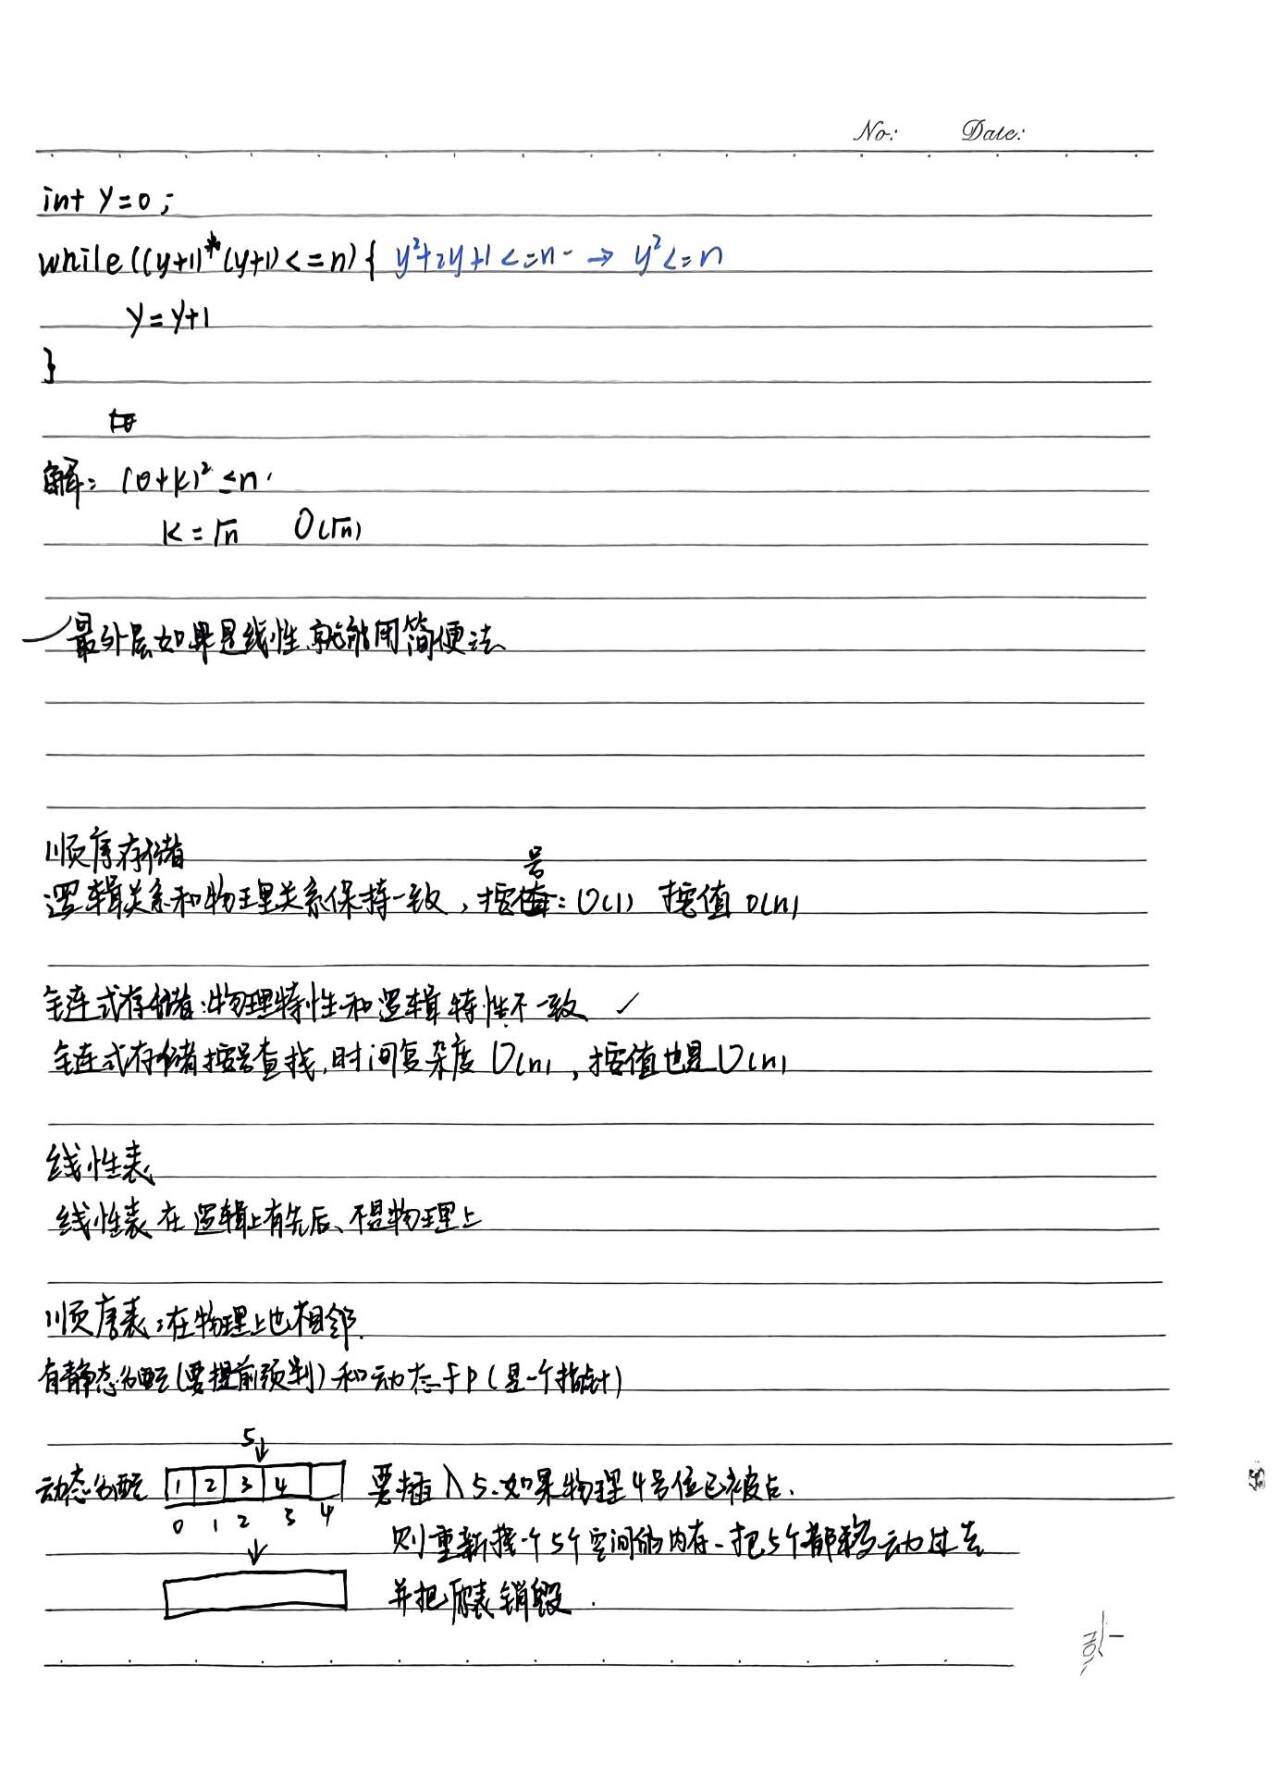 No: Date:
int y=0;
while((y+1)*(y+1)<=n){ y²+2y+1<=n → y²<=n
y=y+1
}
解: (0+k)²≤n
k=√n O(√n)
最外层如果是线性,就能用简便法
顺序存储
号
逻辑关系和物理关系保持一致,按: O(1) 按值 O(n)
链式存储:物理特性和逻辑特性不一致 ✓
链式存储按号查找,时间复杂度 O(n),按值也是O(n)
线性表
线性表在逻辑上有先后、不是物理上
顺序表:在物理上也相邻.
有静态分配(要提前预判)和动态分P(是一个指针)
5
动态分配 1 2 3 4 要插入5.如果物理4号位已被占.
0 1 2 3 4
则重新找一个5个空间的内存、把5个都移动过去
并把原表销毁.